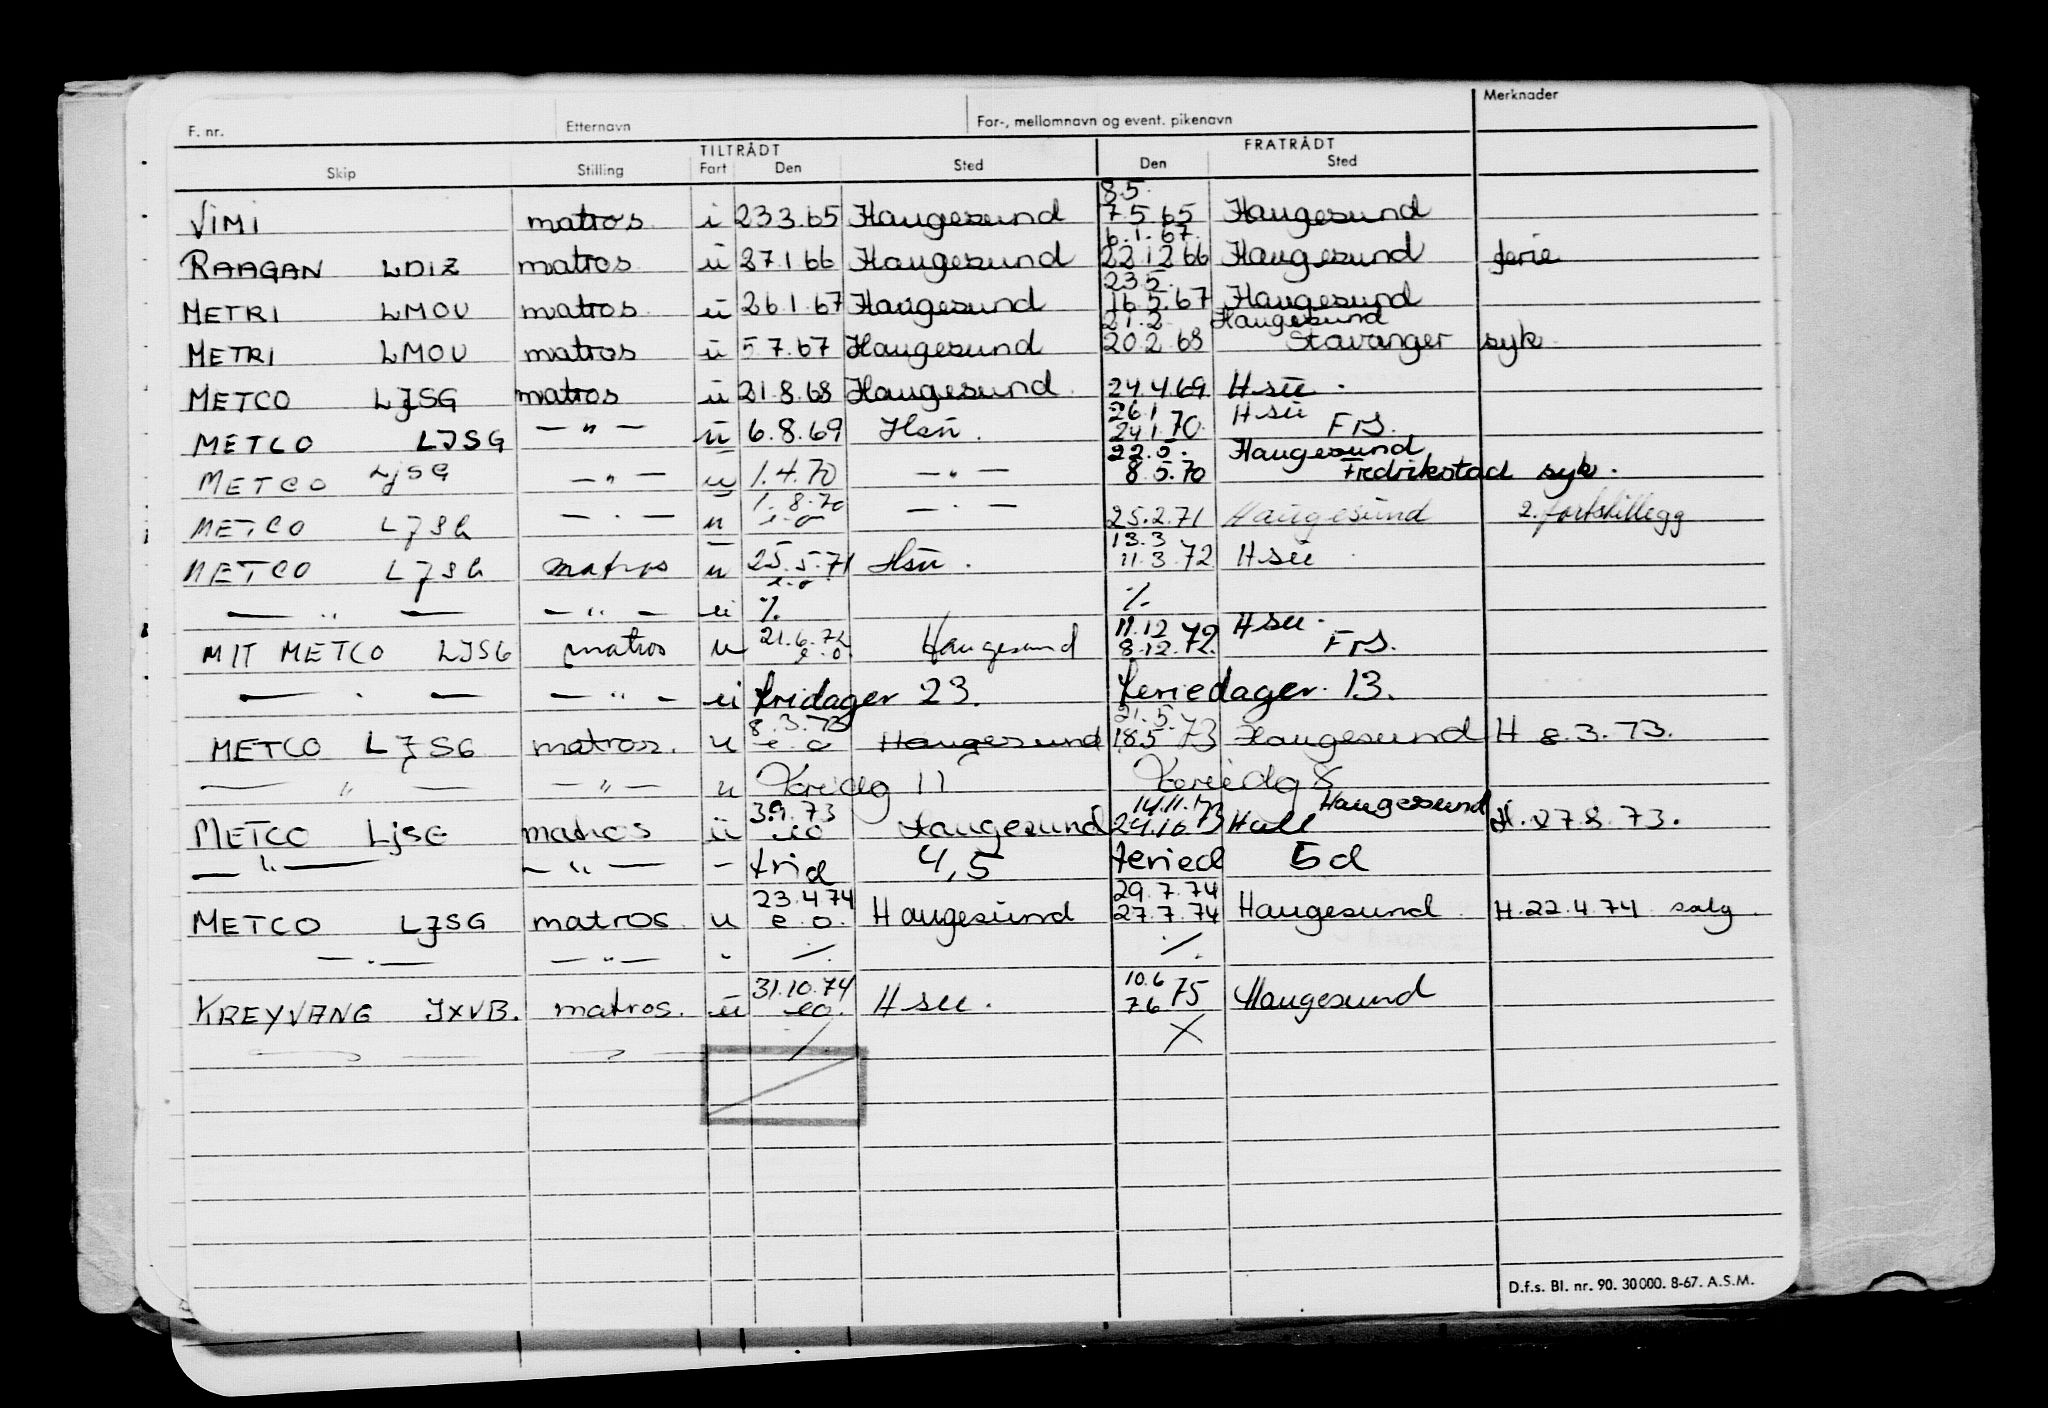 F. nr. Etternavn For-, mellomnavn og event. pikenavn Merknader
TILTRÅDT FRATRÅDT
Skip Stilling Fart Den Sted Den Sted
8.5.
VIMI matros i 23.3.65 Haugesund 7.5.65 Haugesund
6.1.67.
RAAGAN LDIZ matros u 27.1 66 Haugesund 22.12 66 Haugesund ferie
23.5.
METRI LMOU matros u 26.1.67 Haugesund 16.5.67 Haugesund
21.2 Haugesund
METRI LMOU matros u 5.7.67 Haugesund 20.2.68 Stavanger syk
METCO LJSG matros u 21.8.68 Haugesund 24.4.69 Hsu.
26.1 Hsu
METCO LJSG — " — u 6.8.69 Hsu. 24.1.70. FrS.
22.5. Haugesund
METCO LJSG — " — u 1.4.70 — " — 8.5.70 Fredrikstad syk.
1.8.70
METCO LJSG — " — u e.o — " — 25.2.71 Haugesund 2. fartstillegg
13.3
METCO LJSG matros u 25.5.71 Hsu. 11.3.72 Hsu
e.o.
— " — — " — ui %. %.
21.6.72 11.12 Hsu.
MIT METCO LJSG matros u e.o. Haugesund 8.12.72. FrS.
— " — — " — ui fridager 23. feriedager 13.
8.3.73 21.5.
METCO LJSG matros. u e o Haugesund 18.5 73 Haugesund H 8.3.73.
— " — — " — u fridg 11 feriedg 8
3.9.73 14.11.73 Haugesund
METCO LJSG matros u eo Haugesund 24.10 73 Hull H. 27.8.73.
— " — — " — - frid 4,5 feried 5d
23.4.74 29.7.74
METCO LJSG matros. u e.o. Haugesund 27.7.74 Haugesund H.22.4.74 salg.
— " — — " — " %. %.
31.10.74 10.6
KREYVANG JXVB. matros. u eo. Hsu. 7.6.75 Haugesund
— " — — " — / X
D.f.s. Bl. nr. 90. 30 000. 8-67. A.S.M.